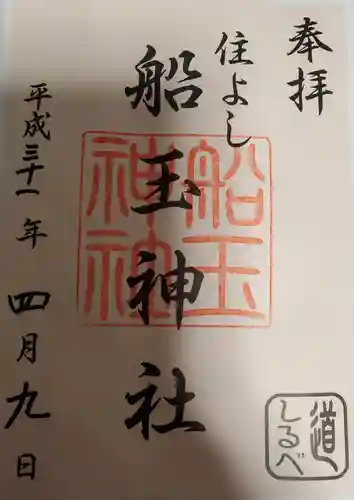 奉拝
住よし
船玉神社
船玉
神社
平成三十一年四月九日
道
しるべ